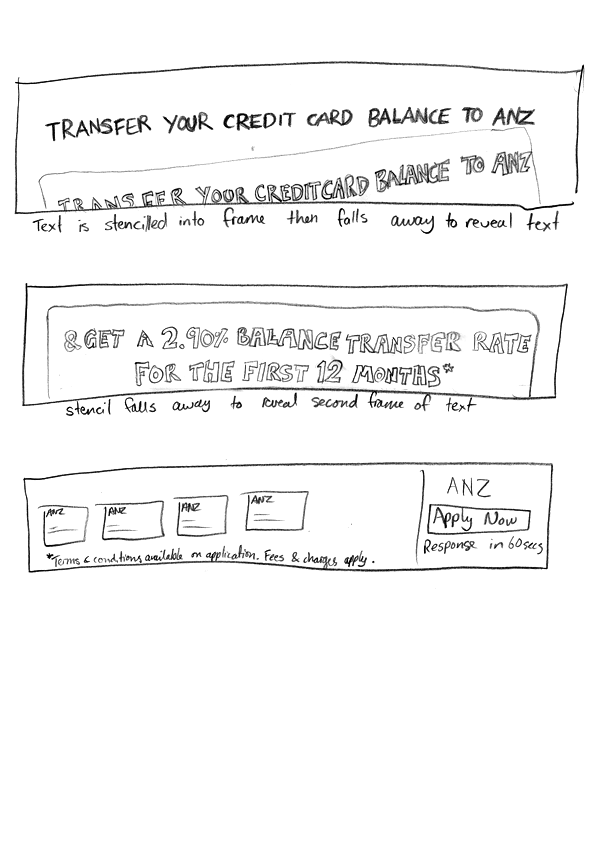 TRANSFER YOUR CREDIT CARD BALANCE TO ANZ
TRANSFER YOUR CREDIT CARD BALANCE TO ANZ
Text is stencilled into frame then falls away to reveal text
& GET A 2.90% BALANCE TRANSFER RATE
FOR THE FIRST 12 MONTHS*
stencil falls away to reveal second frame of text
ANZ
ANZ
ANZ
ANZ
*Terms & conditions available on application. Fees & charges apply.
ANZ
Apply Now
Response in 60secs